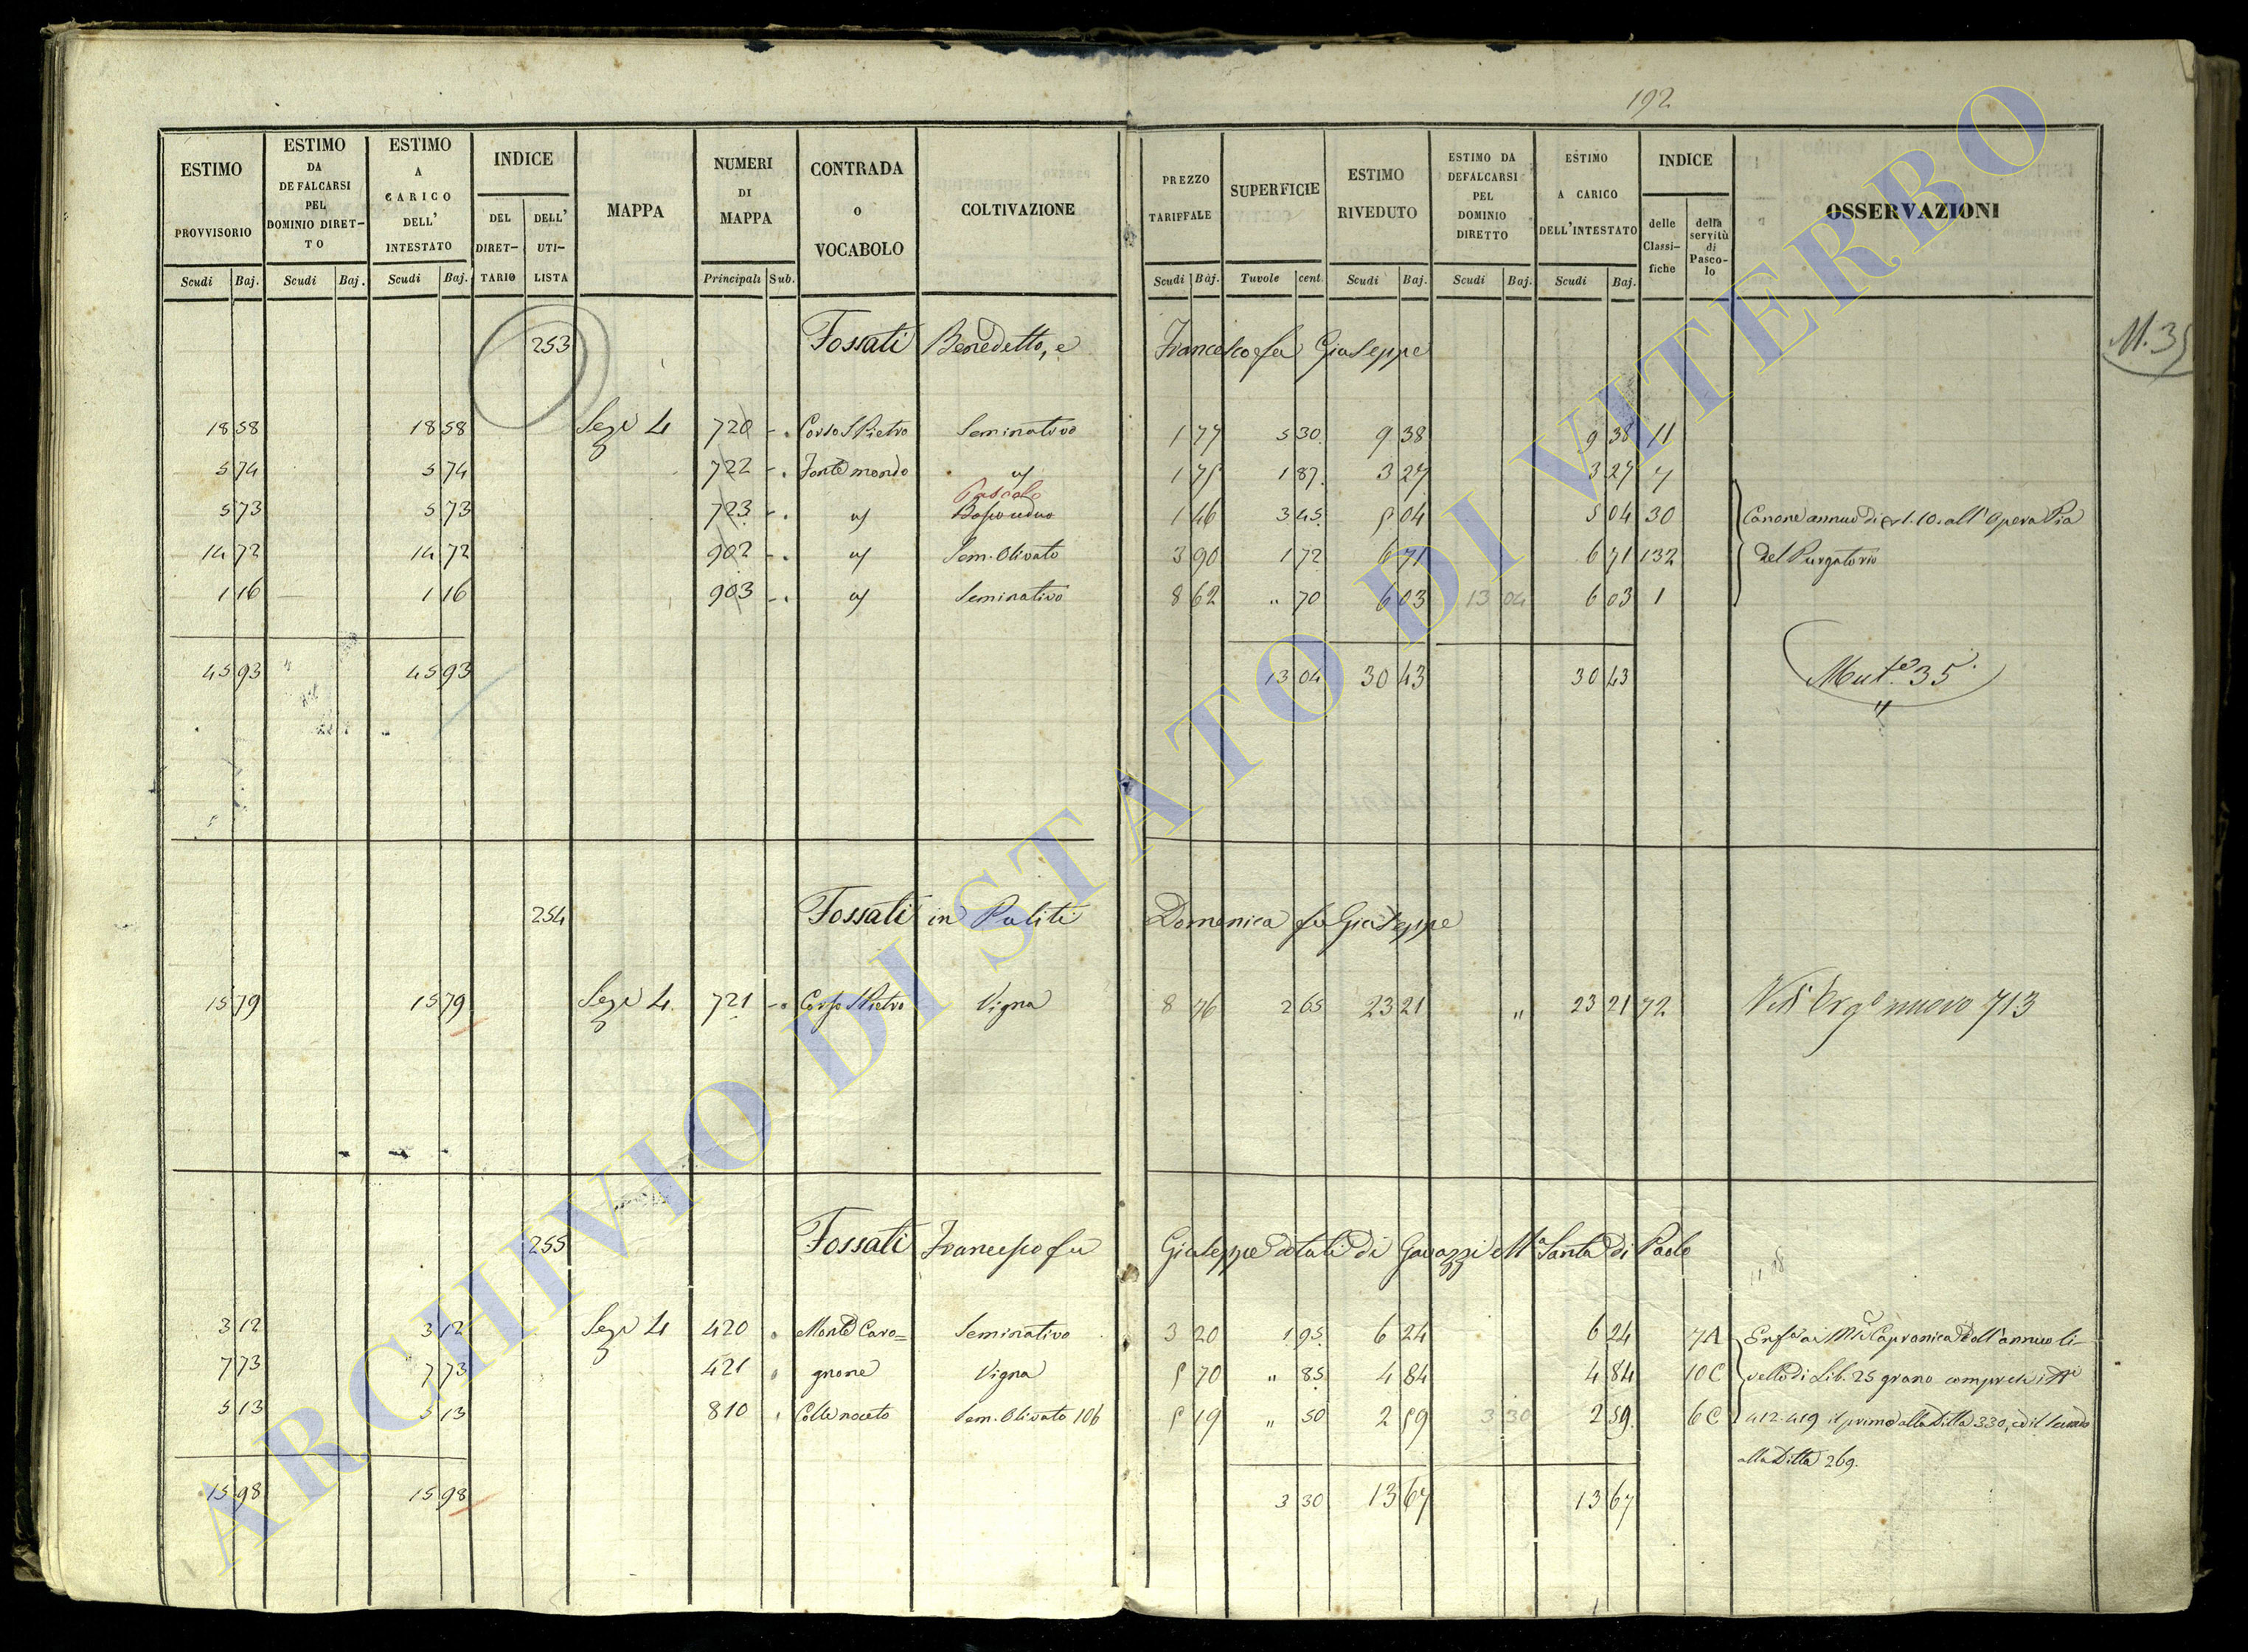 192
ESTIMO PROVVISORIO Scudi Baj.
ESTIMO DA DEFALCARSI PEL DOMINIO DIRETTO Scudi Baj.
ESTIMO A CARICO DELL' INTESTATO Scudi Baj.
INDICE DEL DIRETTARIO DELL' UTILISTA
MAPPA
NUMERI DI MAPPA Principali Sub.
CONTRADA o VOCABOLO
COLTIVAZIONE
PREZZO TARIFFALE Scudi Baj.
SUPERFICIE Tavole cent.
ESTIMO RIVEDUTO Scudi Baj.
ESTIMO DA DEFALCARSI PEL DOMINIO DIRETTO Scudi Baj.
ESTIMO A CARICO DELL'INTESTATO Scudi Baj.
INDICE delle Classifiche della servitù di Pascolo
OSSERVAZIONI
253 Fossati Benedetto, e Francesco fu Giuseppe
M. 35
18 58 18 58 Sez. 4 720 - . Corso S Pietro Seminativo 1 77 5 30. 9 38 9 38 11
5 74 5 74 722 - . Fonte mondo " 1 75 1 87. 3 27 3 27 7
Pascolo
5 73 5 73 723 - . " 1 46 3 45. 5 04 5 04 30 Canone annuo di 1.10. all'Opera Pia
14 72 14 72 902 - . " Sem. Olivato 3 90 1 72 6 71 6 71 132 del Purgatorio
1 16 1 16 903 - . " Seminativo 8 62 " 70 6 03 13 04 6 03 1
45 93 " 45 93 13 04 30 43 30 43 Mut.e 35.
254 Fossati in Puliti Domenica fu Giuseppe
15 79 15 79 Sez. 4. 721 - . Corso S Pietro Vigna 8 76 2 65 23 21 " 23 21 72 Vedi Orgo nuovo 713
255 Fossati Francesco fu Giuseppe dotali di Gavazzi Ma Santa di Paolo
3 12 3 12 Sez. 4 420 Monte Cavo= Seminativo 3 20 1 95. 6 24 6 24 7A Enfa ai Capranica dell'annuo li-
7 73 7 73 421 gnone Vigna 5 70 " 85. 4 84 4 84 10C vello di Lib. 25 grano
5 13 5 13 810 Colle noceto Sem. Olivato 106 5 19 " 50 2 59 3 30 2 59. 6C 412. 419 il primo alla Ditta 330, ed il secondo
alla Ditta 269.
15 98 15 98 3 30 13 67 13 67
ARCHIVIO DI STATO DI VITERBO